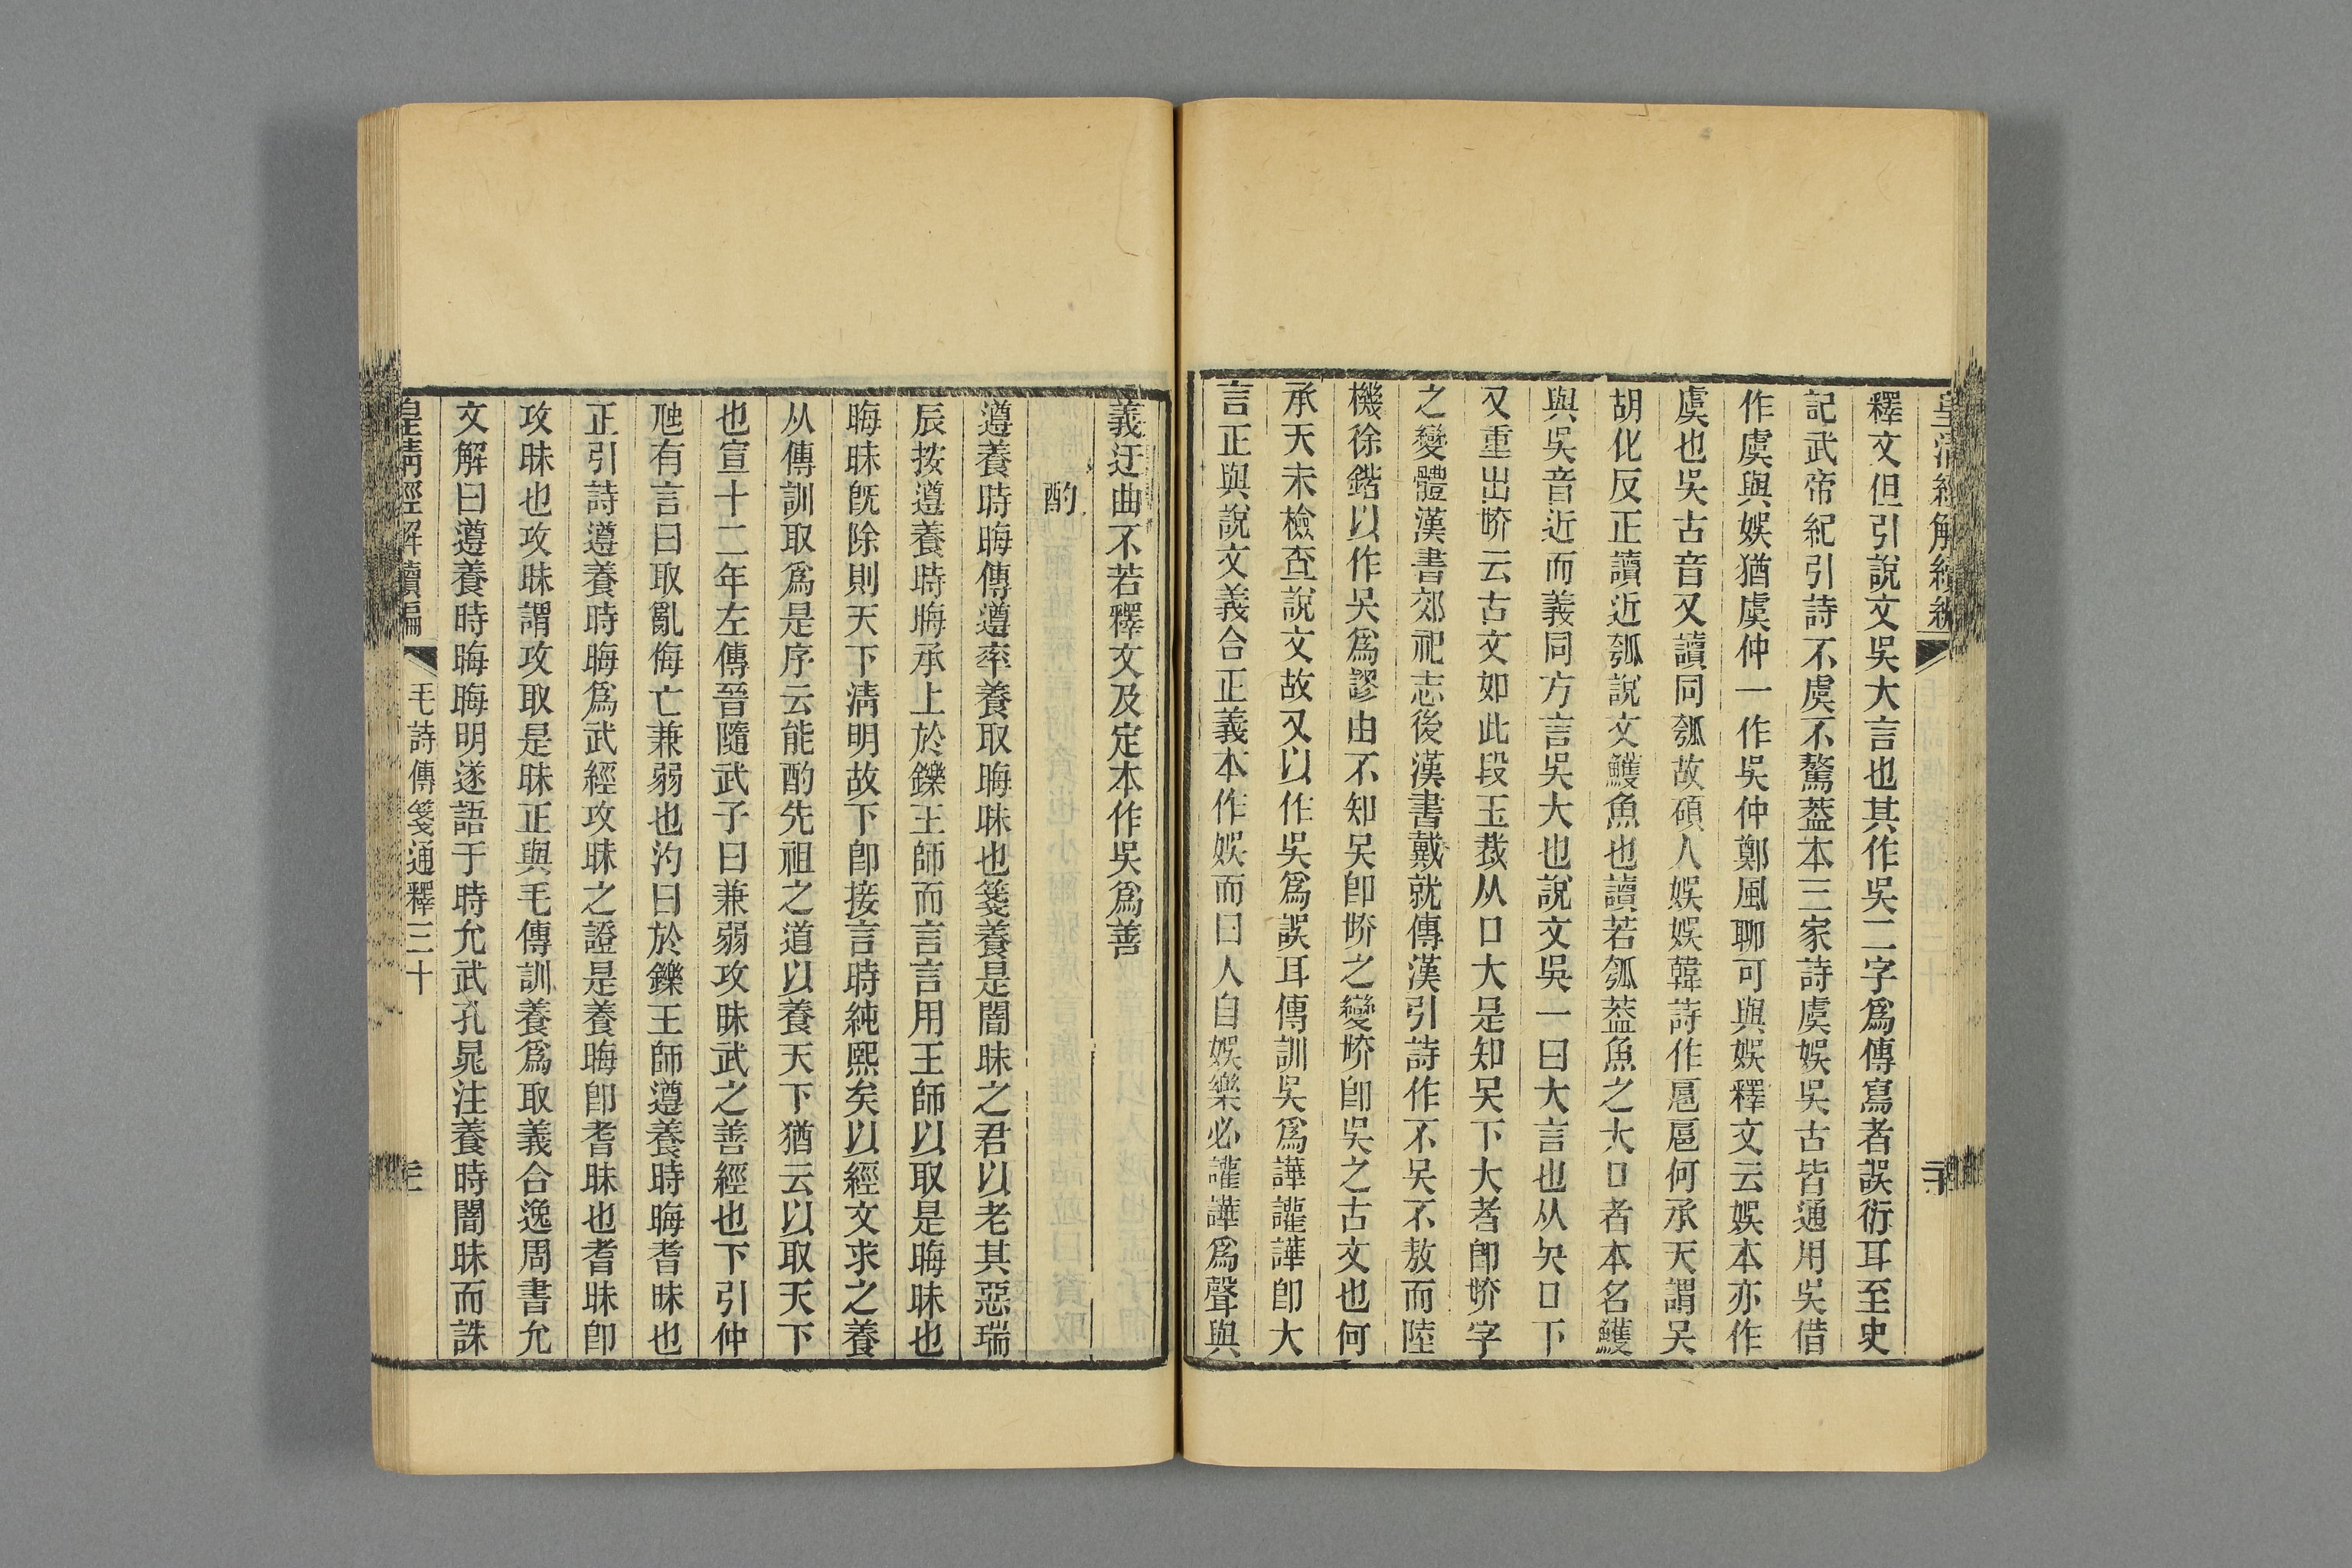 皇清經解續編
釋文但引說文吳大言也其作吳二字爲傳寫者誤衍耳至史
記武帝紀引詩不虞不驁葢本三家詩虞娛吳古皆通用吳借
作虞與娛猶虞仲一作吳仲鄭風聊可與娛釋文云娛本亦作
虞也吳古音又讀同瓠故碩人娛娛韓詩作扈扈何承天謂吳
胡化反正讀近瓠說文鱯魚也讀若瓠葢魚之大口者本名鱯
與吳音近而義同方言吳大也說文吳一曰大言也从夨口下
又重出㕦云古文如此段玉裁从口大是知吴下大者卽㕦字
之變體漢書郊祀志後漢書戴就傳漢引詩作不吴不敖而陸
機徐鍇以作吴爲謬由不知吴卽㕦之變㕦卽吳之古文也何
承天未檢查說文故又以作吳爲誤耳傳訓吳爲譁讙譁卽大
言正與說文義合正義本作娛而曰人自娛樂必讙譁爲聲與
二十
義迂曲不若釋文及定本作吳爲善
酌
遵養時晦傳遵率養取晦昧也箋養是闇昧之君以老其惡瑞
辰按遵養時晦承上於鑠王師而言言用王師以取是晦昧也
晦昧旣除則天下清明故下卽接言時純熙矣以經文求之養
从傳訓取爲是序云能酌先祖之道以養天下猶云以取天下
也宣十二年左傳晉隨武子曰兼弱攻昧武之善經也下引仲
虺有言曰取亂侮亡兼弱也汋曰於鑠王師遵養時晦耆昧也
正引詩遵養時晦爲武經攻昧之證是養晦卽耆昧也耆昧卽
攻昧也攻昧謂攻取是昧正與毛傳訓養爲取義合逸周書允
文解曰遵養時晦晦明遂語于時允武孔晁注養時闇昧而誅
皇清經解續編
毛詩傳箋通釋三十